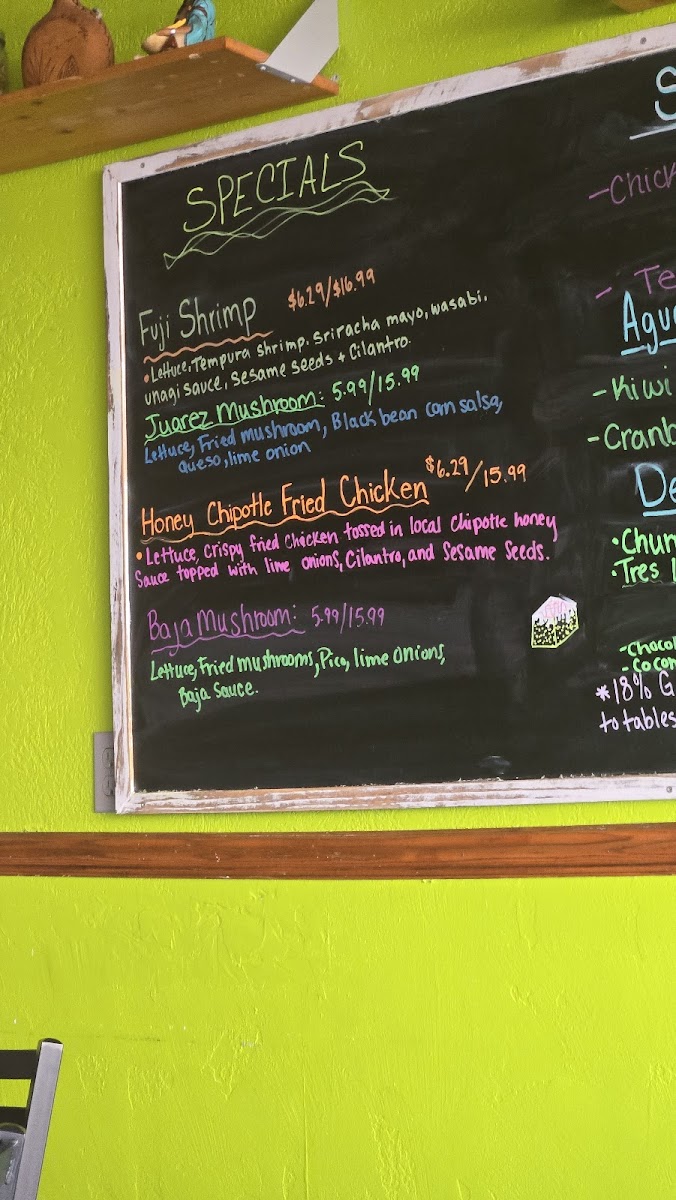 SPECIALS
Fuji Shrimp $6.29/$16.99
• Lettuce, Tempura shrimp, Sriracha mayo, wasabi,
unagi sauce, sesame seeds + Cilantro.
Juarez Mushroom: 5.99/15.99
Lettuce, Fried mushroom, Black bean corn salsa,
queso, lime onion
Honey Chipotle Fried Chicken $6.29/15.99
• Lettuce, crispy fried chicken tossed in local chipotle honey
Sauce topped with lime onions, Cilantro, and Sesame Seeds.
Baja Mushroom: 5.99/15.99
Lettuce, Fried mushrooms, Pico, lime onions,
Baja Sauce.
S
-Chick
- Te
Agu
- Kiwi
- Cranb
De
• Chur
• Tres l
-Chocol
- Cocon
*18% G
to tables